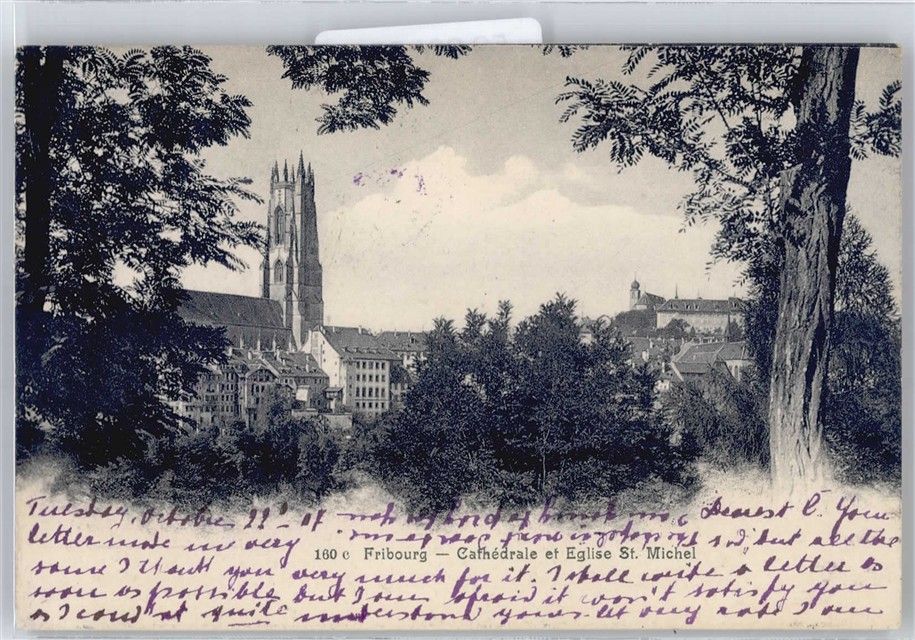 Tuesday, October 22d 07 Dearest C. Your
letter made me very so sad, but all the
160 c Fribourg — Cathédrale et Eglise St. Michel
same I thank you very much for it. I shall write a letter as
soon as possible but I am afraid it won't satisfy you
as I could'nt quite understand yours. at any rate I am